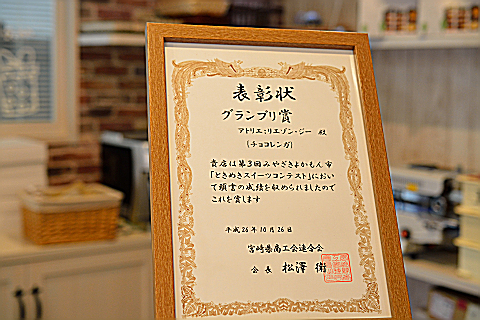 表彰状
グランプリ賞
アトリエ・リエゾン・ジー 殿
(チョコレンガ)
貴店は第3回みやざきよかもん市
「ときめきスイーツコンテスト」におい
て頭書の成績を収められましたので
これを賞します
平成26年10月26日
宮崎県商工会連合会
会長 松澤 衛